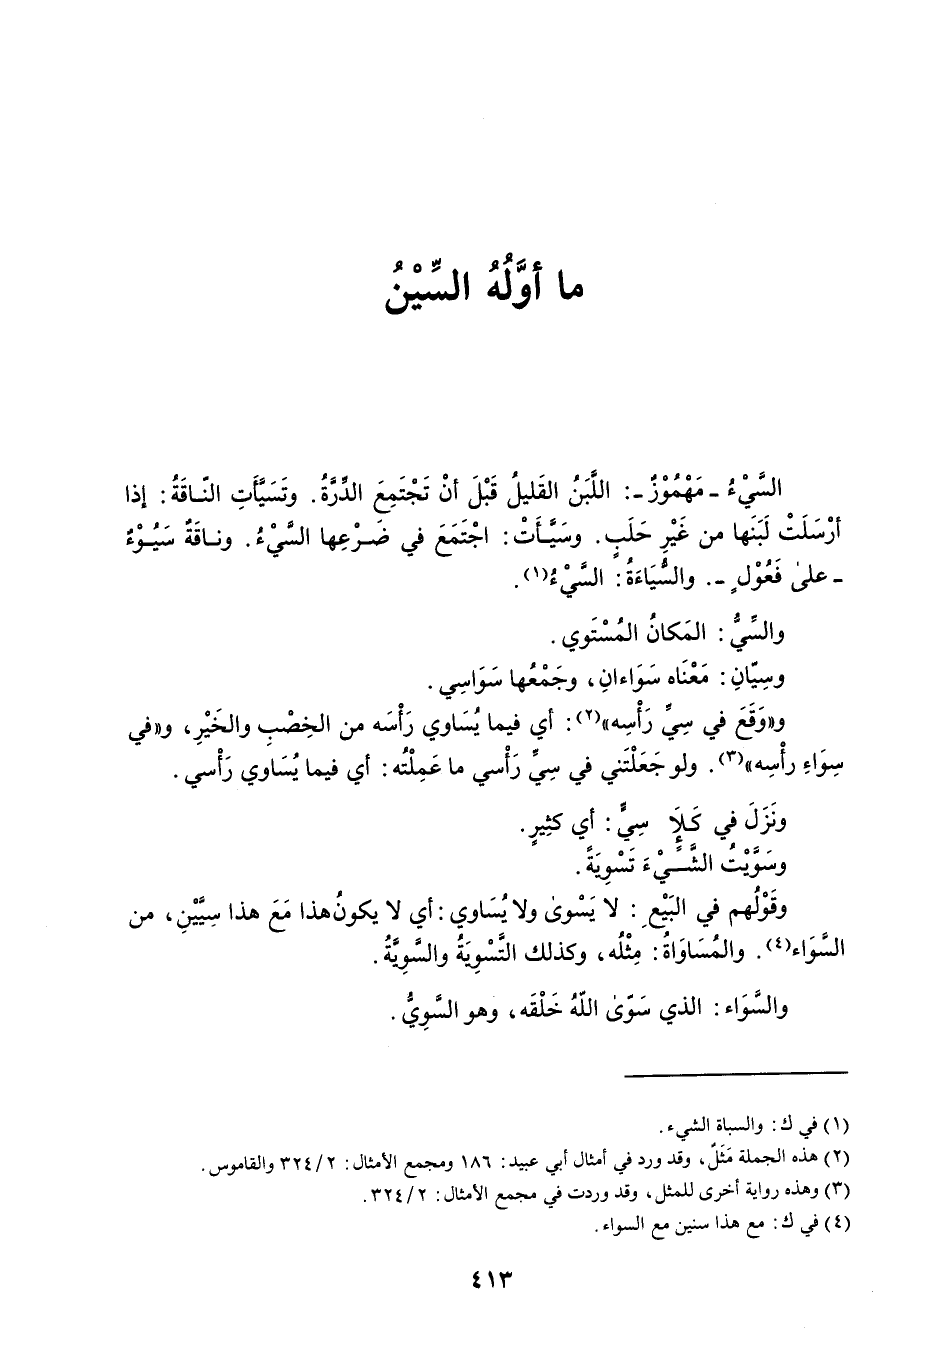 ما أوَّلُهُ السِّيْنُ
السَّيْءُ ـ مَهْمُوْزٌ ـ: اللَّبَنُ القَليلُ قَبْلَ أنْ تَجْتَمِعَ الدِّرَّةُ. وتَسَيَّأَتِ النّاقَةُ: إذا
أرْسَلَتْ لَبَنَها من غَيْرِ حَلَبٍ. وسَيَّأَتْ: اجْتَمَعَ في ضَرْعِها السَّيْءُ. وناقَةٌ سَيُوْءٌ
ـ علىٰ فَعُوْلٍ ـ. والسُّيَاءَةُ: السَّيْءُ(١).
والسِّيُّ: المَكانُ المُسْتَوي.
وسِيّانِ: مَعْنَاه سَوَاءانِ، وجَمْعُها سَوَاسِي.
و«وَقَعَ في سِيِّ رَأْسِه»(٢): أي فيما يُسَاوي رَأْسَه من الخِصْبِ والخَيْرِ، و«في
سِوَاءِ رأْسِه»(٣). ولو جَعَلْتَني في سِيِّ رَأْسي ما عَمِلْتُه: أي فيما يُسَاوي رَأْسي.
ونَزَلَ في كَلَإٍ سِيٍّ: أي كثِيرٍ.
وسَوَّيْتُ الشَّيْءَ تَسْوِيَةً.
وقَوْلُهم في البَيْعِ: لا يَسْوىٰ ولا يُسَاوي: أي لا يكونُ هذا مَعَ هذا سِيَّيْنِ، من
السَّوَاء(٤). والمُسَاوَاةُ: مِثْلُه، وكذلك التَّسْوِيَةُ والسَّوِيَّةُ.
والسَّوَاء: الذي سَوّىٰ اللّهُ خَلْقَه، وهو السَّوِيُّ.
(١) في ك: والسباة الشيء.
(٢) هذه الجملة مَثَلٌ، وقد ورد في أمثال أبي عبيد: ١٨٦ ومجمع الأمثال: ٢/ ٣٢٤ والقاموس.
(٣) وهذه رواية أخرى للمثل، وقد وردت في مجمع الأمثال: ٢/ ٣٢٤.
(٤) في ك: مع هذا سنين مع السواء.
٤١٣